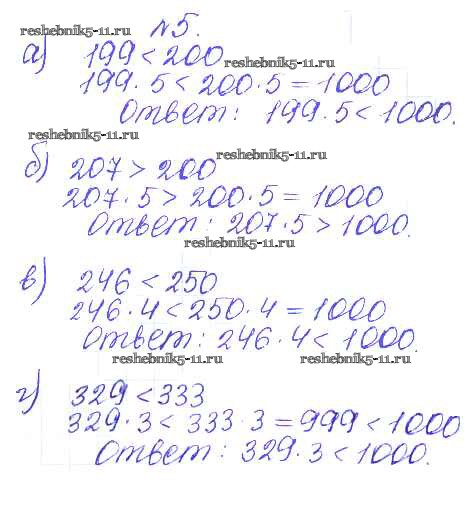 №5.
reshebnik5-11.ru
а) 199 < 200
reshebnik5-11.ru
199 · 5 < 200 · 5 = 1000
Ответ: 199 · 5 < 1000.
reshebnik5-11.ru
б) 207 > 200
reshebnik5-11.ru
207 · 5 > 200 · 5 = 1000
Ответ: 207 · 5 > 1000.
reshebnik5-11.ru
в) 246 < 250
246 · 4 < 250 · 4 = 1000
Ответ: 246 · 4 < 1000.
reshebnik5-11.ru reshebnik5-11.ru
г) 329 < 333
329 · 3 < 333 · 3 = 999 < 1000
Ответ: 329 · 3 < 1000.